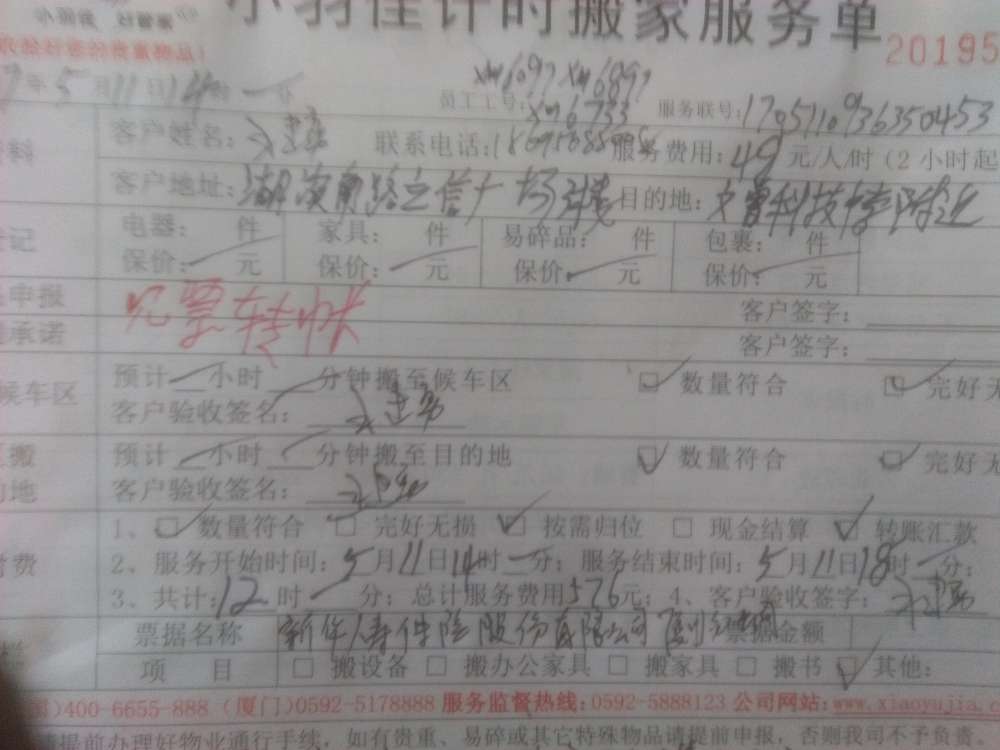 小羽佳计时搬家服务单
20195
7年5月11日14时一分
员工工号: xm6097 xm6897
xm6733
服务联号:1705710936350453
客户姓名:
联系电话:
服务费用:48元/人/时(2小时起
客户地址:湖滨南路之信广场
目的地:附近
电器: 件
家具: 件
易碎品: 件
包裹: 件
保价: 元
保价: 元
保价: 元
保价: 元
申报
见票转帐
客户签字:
承诺
客户签字:
候车区
预计 小时 分钟搬至候车区
数量符合
完好无
客户验收签名:
搬
预计 小时 分钟搬至目的地
数量符合
完好无
的地
客户验收签名:
1、 数量符合 完好无损 按需归位 现金结算 转账汇款
付费
2、服务开始时间:5月11日14时一分;服务结束时间:5月11日18时一分;
3、共计:12时 分;总计服务费用576元;4、客户验收签字:
票据名称
新华人寿保险股份有限公司
票据金额
项 目 搬设备 搬办公家具 搬家具 搬书 其他:
)400-6655-888 (厦门)0592-5178888 服务监督热线:0592-5888123 公司网站:www.xiaoyujia.c
请提前办理好物业通行手续,如有贵重、易碎或其它特殊物品请提前申报,否则我司不予负责。